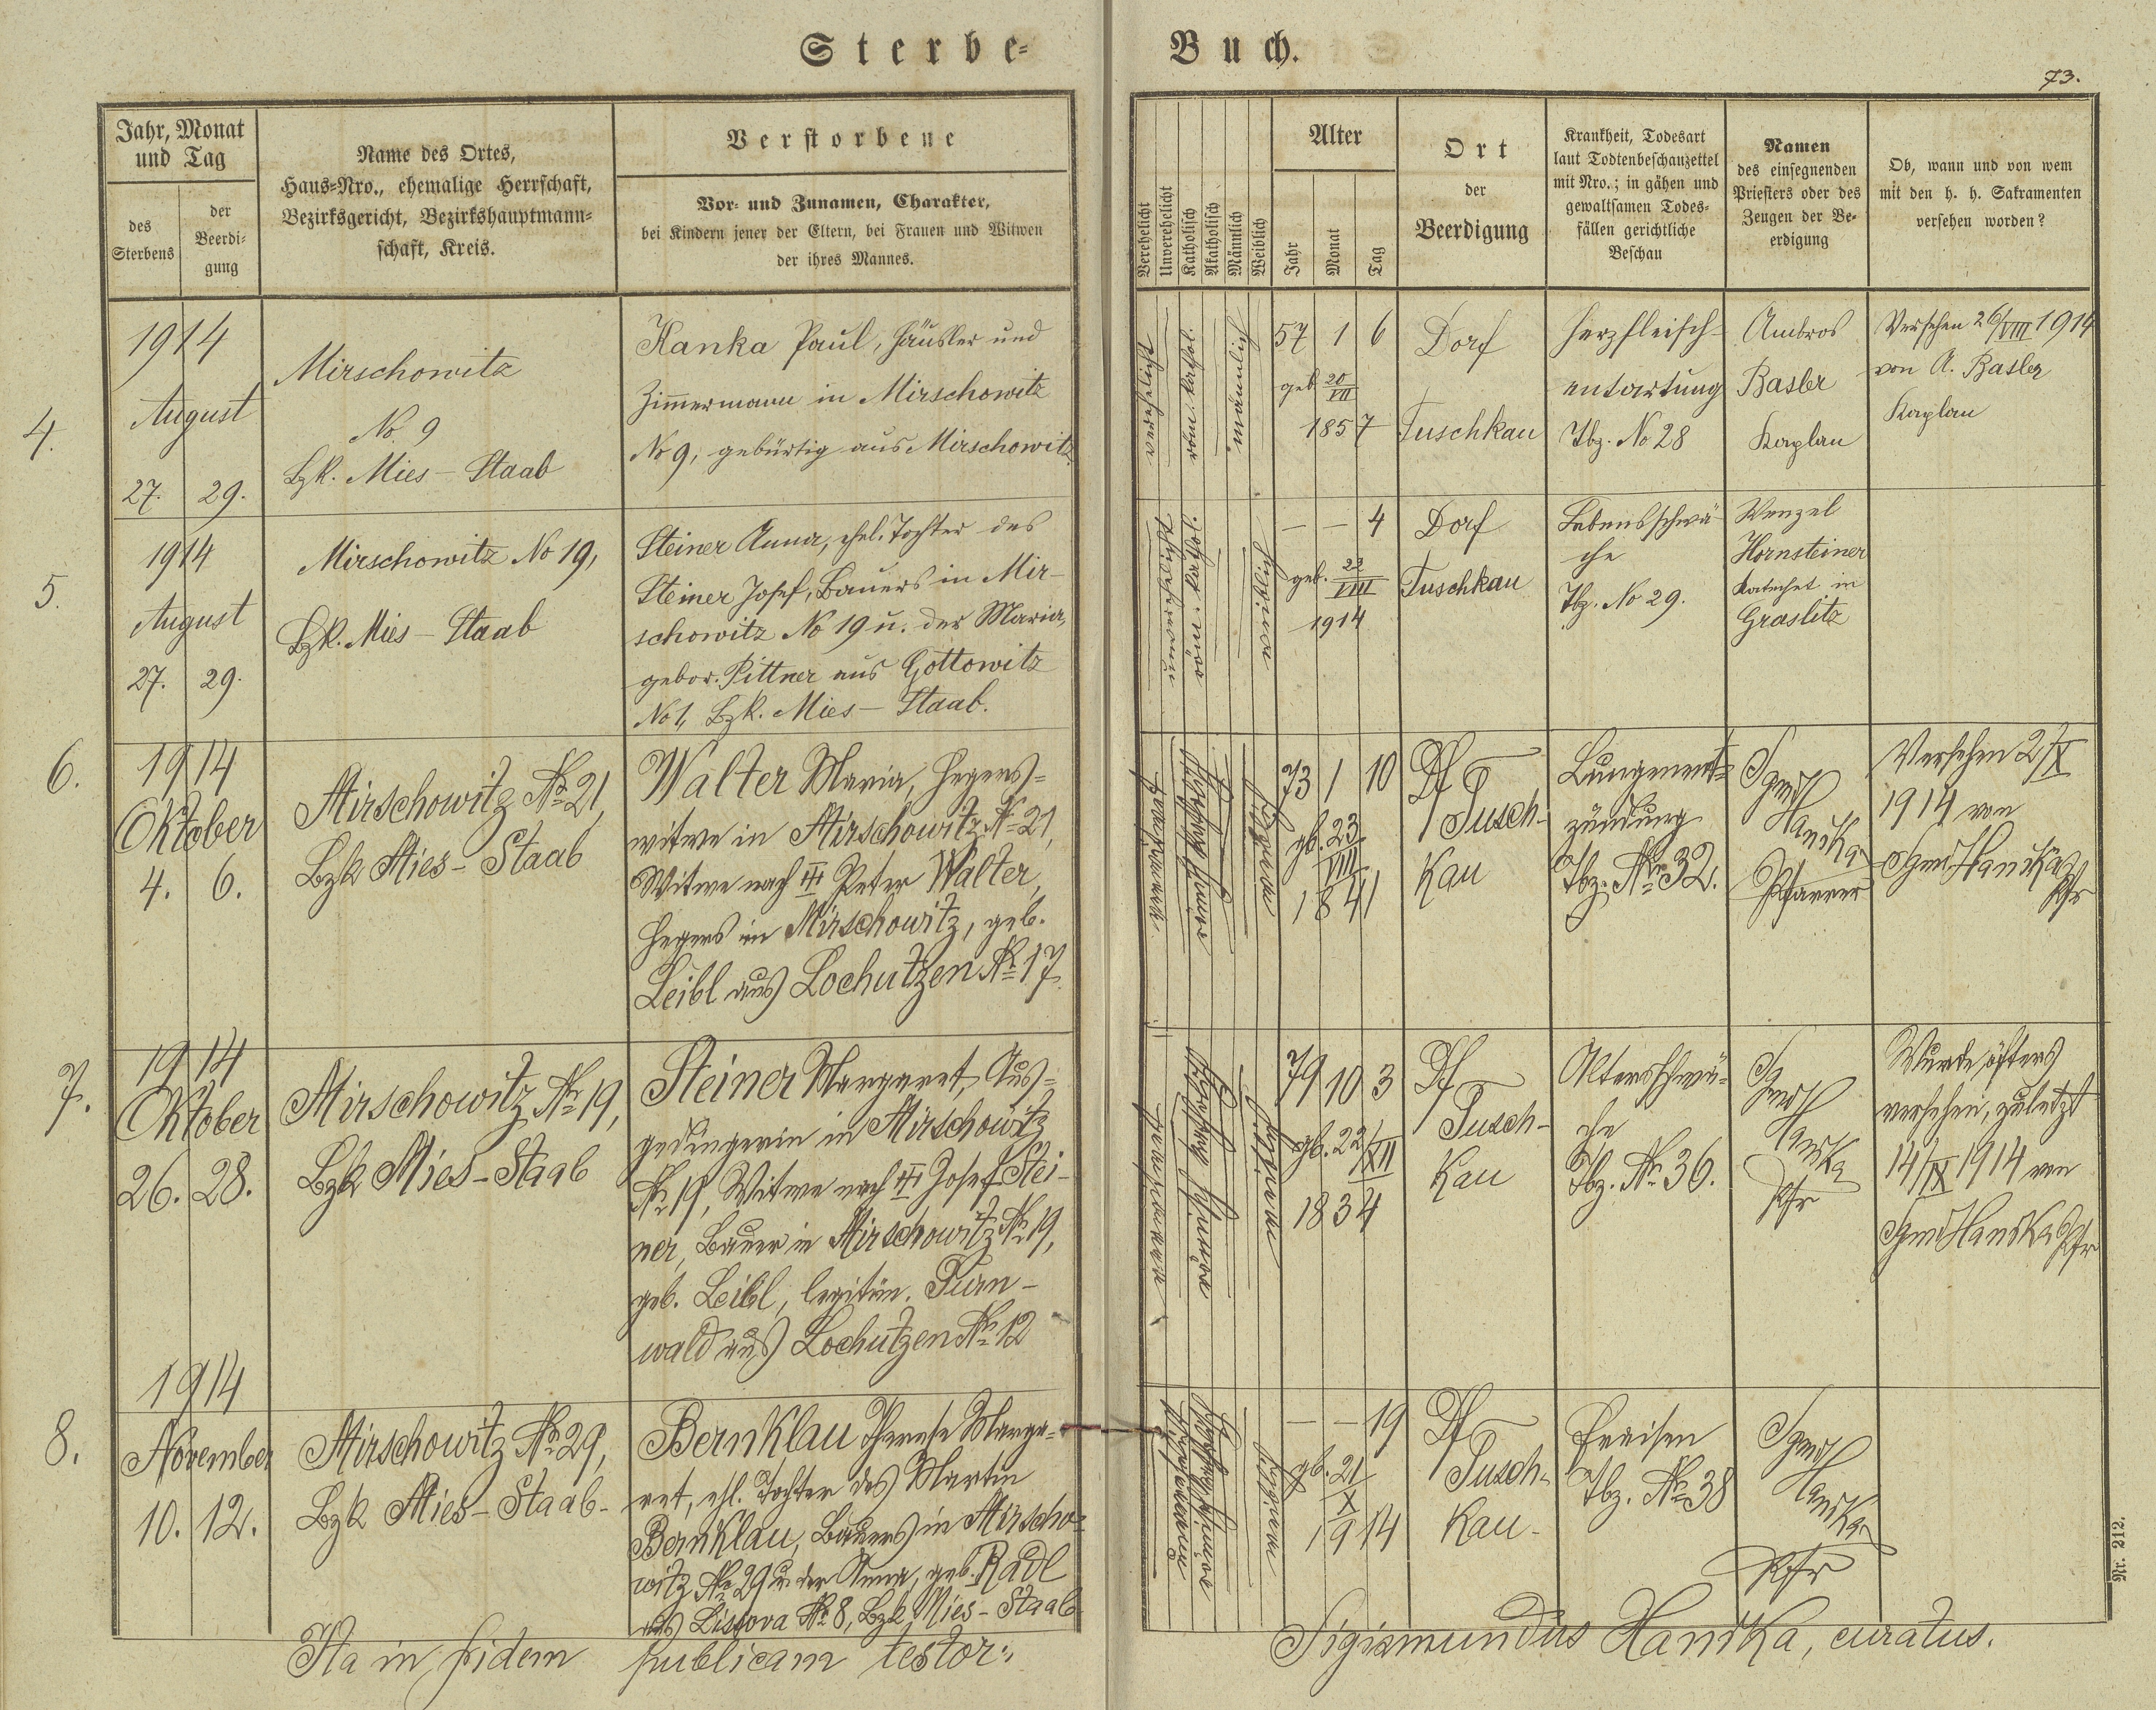 Sterbe-
Buch.
73.
Jahr, Monat
und Tag
des
Sterbens
der
Beerdi-
gung
Name des Ortes,
Haus-Nro., ehemalige Herrschaft,
Bezirksgericht, Bezirkshauptmann-
schaft, Kreis.
Verstorbene
Vor- und Zunamen, Charakter,
bei Kindern jener der Eltern, bei Frauen und Witwen
der ihres Mannes.
Verehelicht
Unverehelicht
Katholisch
Akatholisch
Männlich
Weiblich
Alter
Jahr
Monat
Tag
Ort
der
Beerdigung
Krankheit, Todesart
laut Todtenbeschauzettel
mit Nro.; in gähen und
gewaltsamen Todes-
fällen gerichtliche
Beschau
Namen
des einsegnenden
Priesters oder des
Zeugen der Be-
erdigung
Ob, wann und von wem
mit den h. h. Sakramenten
versehen worden?
4.
1914
August
27. 29.
Mirschowitz
No. 9
Bzk. Mies - Staab
Hanka Paul, Häusler und
Zimmermann in Mirschowitz
No 9, gebürtig aus Mirschowitz
57 1 6
geb. 20/VII
1857
Dorf
Tuschkau
Herzfleisch-
entartung
Tbz. No 28
Ambros
Basler
Kaplan
Versehen 26/VIII 1914
von A. Basler
Kaplan
5.
1914
August
27. 29.
Mirschowitz No 19,
Bzk. Mies - Staab
Steiner Anna, ehel. Tochter des
Steiner Josef, Bauers in Mir-
schowitz No 19 u. der Maria,
gebor. Pittner aus Gottowitz
No 1, Bzk. Mies - Staab.
- - 4
geb. 23/VIII
1914
Dorf
Tuschkau
Lebensschwä-
che
Tbz. No 29.
Wenzel
Hornsteiner
Katechet in
Graslitz
6.
1914
Oktober
4. 6.
Mirschowitz No 21,
Bzk Mies - Staab
Walter Maria, Hegers-
witwe in Mirschowitz No 21,
Witwe nach Peter Walter,
Hegers in Mirschowitz, geb.
Leibl aus Lochutzen No 17.
73 1 10
gb. 23/VIII
1841
Df
Tusch-
kau
Lungenent-
zündung
Tbz. No 32.
Sgmd
Hanska
Pfarrer
Versehen 2/X
1914 von
Sgmd Hanska
Pfr
7.
1914
Oktober
26. 28.
Mirschowitz No 19,
Bzk Mies - Staab
Steiner Margaret, Aus-
gedingerin in Mirschowitz
No 19, Witwe nach Josef Stei-
ner, Bauer in Mirschowitz No 19,
geb. Leibl, legitim. Turn-
wald aus Lochutzen No 12
79 10 3
gb. 22/XII
1834
Df
Tusch-
kau
Altersschwä-
che
Tbz. No 36.
Sgmd
Hanska
Pfr
Wurde öfters
versehen, zuletzt
14/IX 1914 von
Sgmd Hanska Pfr
8.
1914
November
10. 12.
Mirschowitz No 29,
Bzk Mies - Staab -
Bernklau Therese Marga-
ret, ehl. Tochter des Martin
Bernklau, Bauers in Mirscho-
witz No 29 u. der Anna, geb. Radl
aus Lissova No 8, Bzk Mies - Staab
- - 19
gb. 21/X
1914
Df
Tusch-
kau -
Fraisen
Tbz. No 38
Sgmd
Hanska
Pfr
Ita in fidem publicam testor:
Sigismundus Hanska, curatus.
Nr. 212.